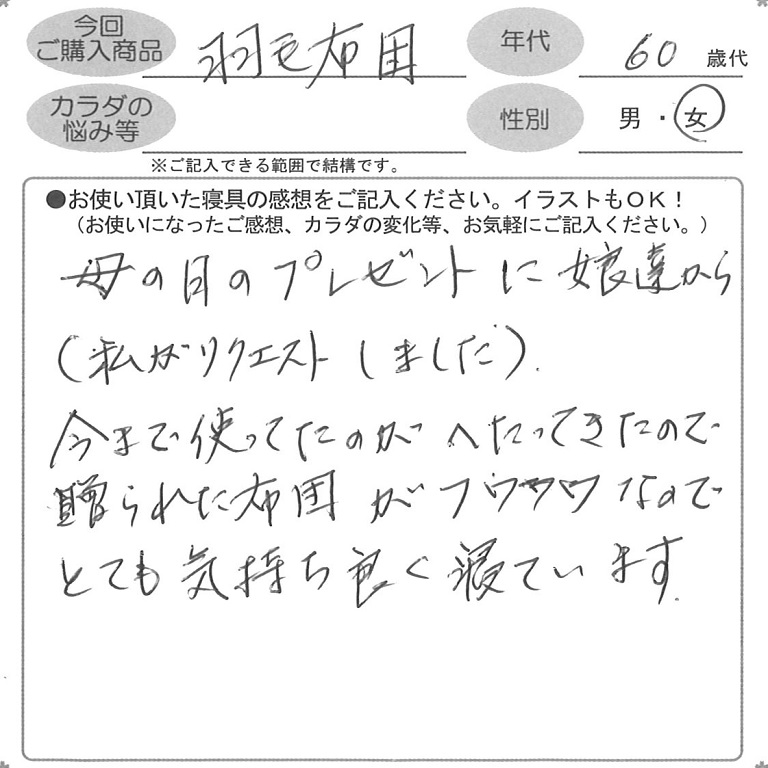 今回
ご購入商品 羽毛布団
年代 60 歳代
カラダの
悩み等
性別 男・女
※ご記入できる範囲で結構です。
●お使い頂いた寝具の感想をご記入ください。イラストもOK!
(お使いになったご感想、カラダの変化等、お気軽にご記入ください。)
母の日のプレゼントに娘達から
(私がリクエストしました).
今まで使ってたのがへたってきたので
贈られた布団がフワフワなので
とても気持ち良く寝ています.